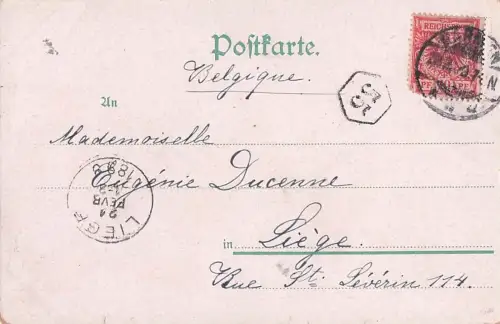 Postkarte.
Belgique.
An
Mademoiselle
Eugénie Ducenne
in Liége.
Rue St. Sévérin 114.
LIEGE
24
FEVR